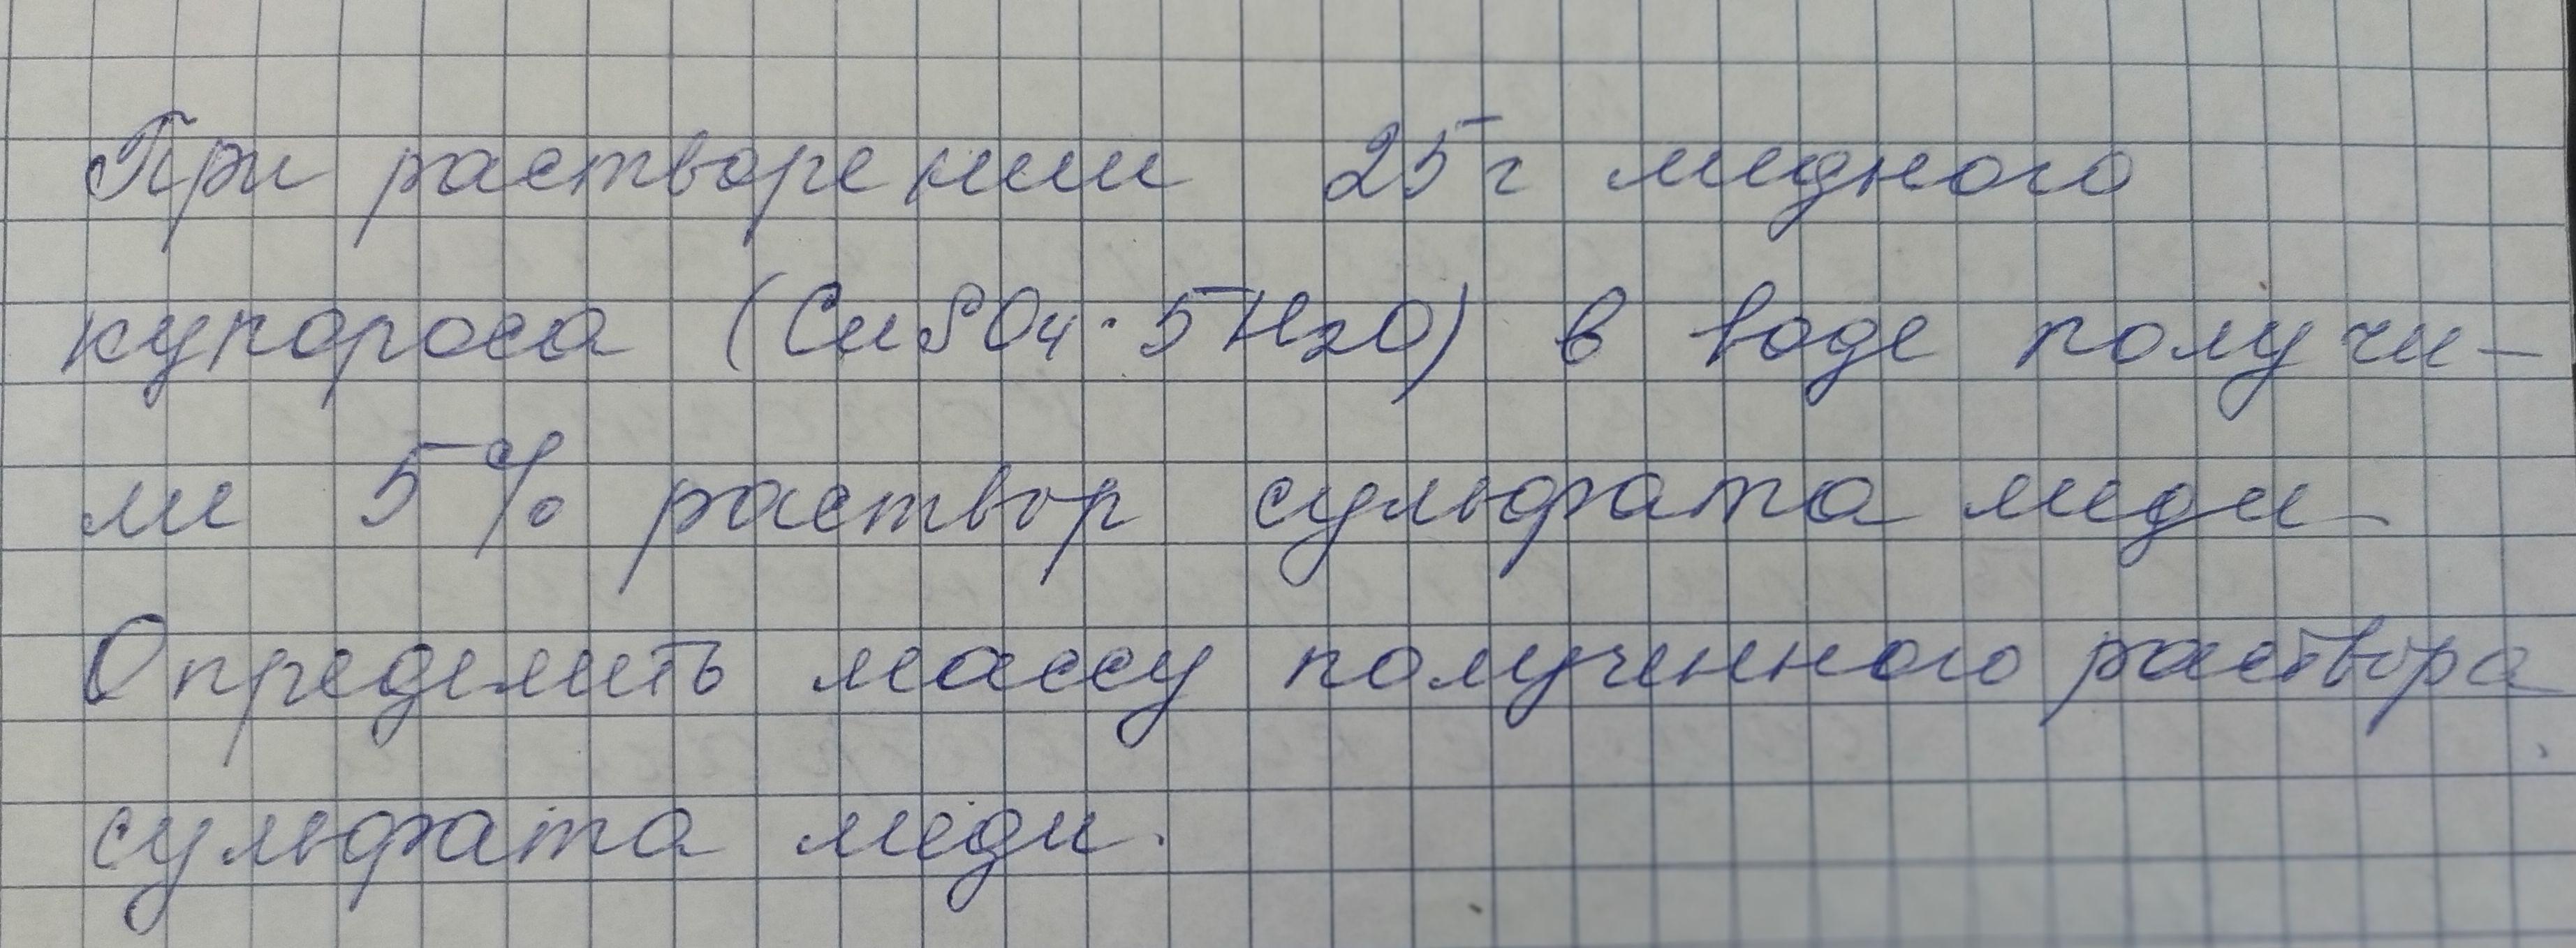 При растворении 25 г медного
купороса (CuSO4 · 5H2O) в воде получи-
ли 5% раствор сульфата меди.
Определить массу полученного раствора
сульфата меди.